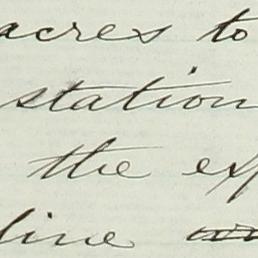 acres to
station
the exp
line